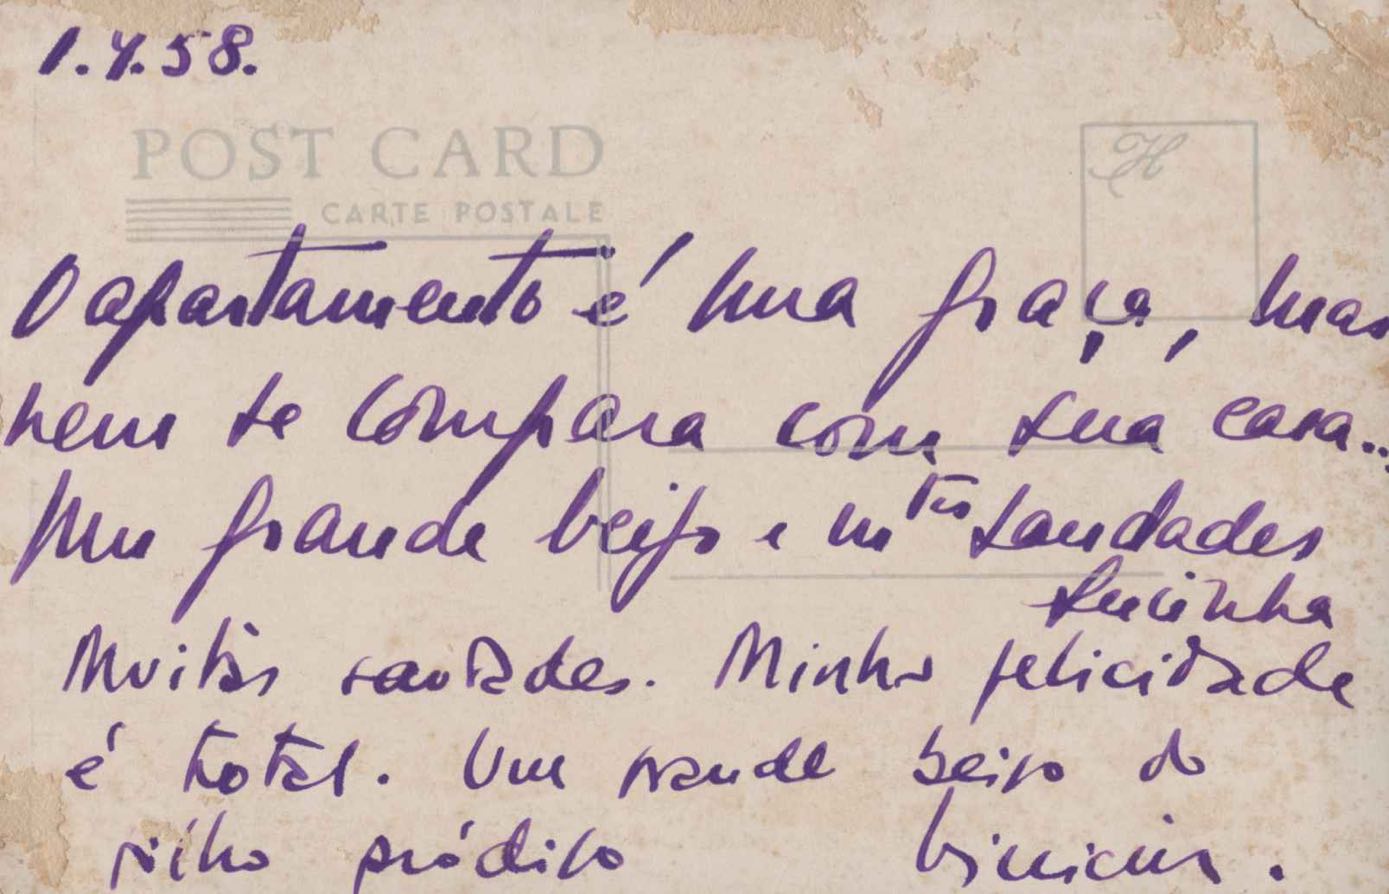 1.4.58.
POST CARD
H
CARTE POSTALE
O apartamento é uma graça, mas
nem se compara com sua casa...
Um grande beijo e mtas saudades
Lucinha
Muitas saudades. Minha felicidade
é total. Um grande beijo do
filho pródigo Vinicius.